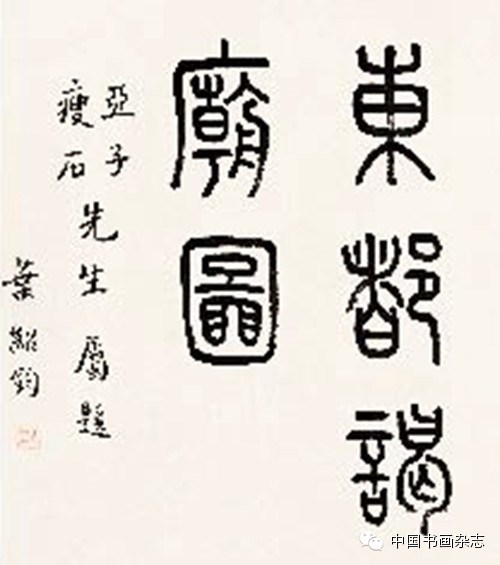 東都謁
廟圖
亞子
瘦石
先生屬題
葉紹鈞
中国书画杂志